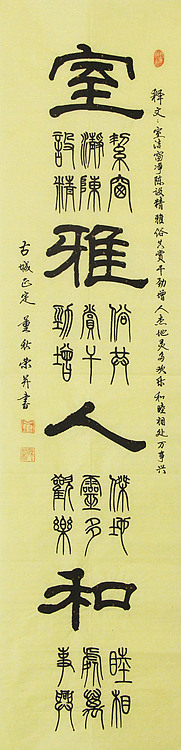 释文：室洁窗净陈设精雅俗共赏千劲增人杰地灵多欢乐和睦相处万事兴
室
絜窗
瀞陳
設精
雅
俗共
賞千
勁增
人
傑地
靈多
歡樂
和
睦相
處萬
事興
古城正定董秋荣并书